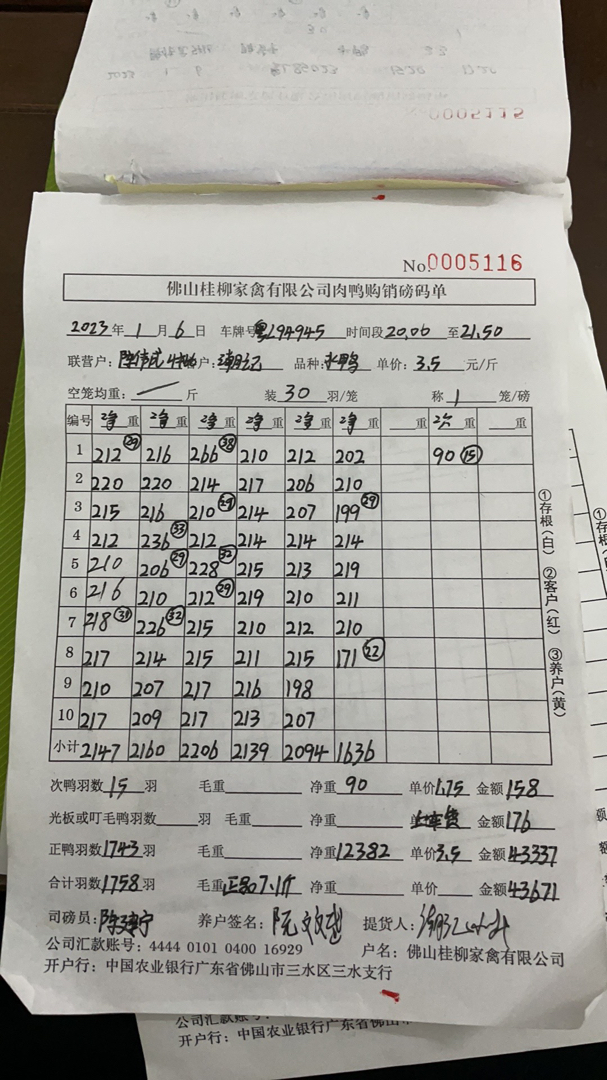 0005115
No.0005116
佛山桂柳家禽有限公司肉鸭购销磅码单
2023年 1月 6日 车牌号 粤J94945 时间段 20.06 至 21.50
联营户: 陈伟成 户: 记 品种: 水鸭 单价: 3.5 元/斤
空笼均重: — 斤 装 30 羽/笼 称 1 笼/磅
编号 净重 净重 净重 净重 净重 净重 重 次重 重
1 212 ㉙ 216 266 ㊳ 210 212 202 90 ⑮
2 220 220 214 217 206 210
3 215 216 210 ㉙ 214 207 199 ㉙
4 212 236 ㉝ 212 214 214 214
5 210 206 ㉙ 228 ㉜ 215 213 219
6 216 210 212 ㉙ 219 210 211
7 218 ㉛ 226 ㉜ 215 210 212 210
8 217 214 215 211 215 171 ㉒
9 210 207 217 216 198
10 217 209 217 213 207
小计 2147 2160 2206 2139 2094 1636
①存根(白) ②客户(红) ③养户(黄)
次鸭羽数 15 羽 毛重 净重 90 单价 1.75 金额 158
光板或叮毛鸭羽数 羽 毛重 净重 金额 176
正鸭羽数 1743 羽 毛重 净重 12382 单价 3.5 金额 43337
合计羽数 1758 羽 毛重 正品7.1斤 净重 单价 金额 43671
司磅员: 陈建宁 养户签名: 阮 提货人:
公司汇款账号: 4444 0101 0400 16929 户名: 佛山桂柳家禽有限公司
开户行: 中国农业银行广东省佛山市三水区三水支行
公司汇款账号:
开户行: 中国农业银行广东省佛山市